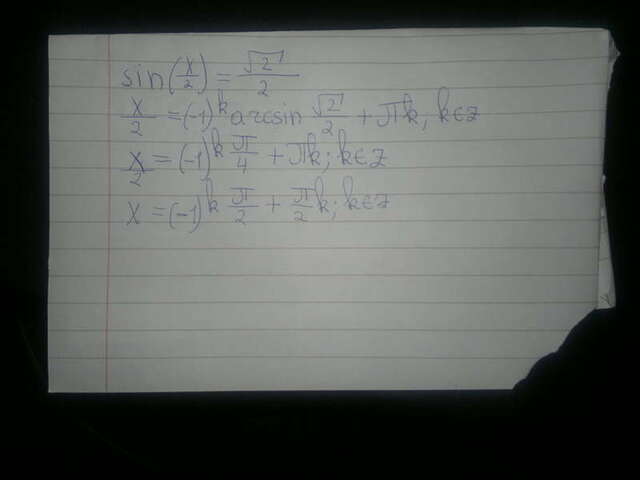 sin(x/2) = √2/2
x/2 = (-1)^k arcsin √2/2 + πk; k∈z
x/2 = (-1)^k π/4 + πk; k∈z
x = (-1)^k π/2 + π/2 k; k∈z